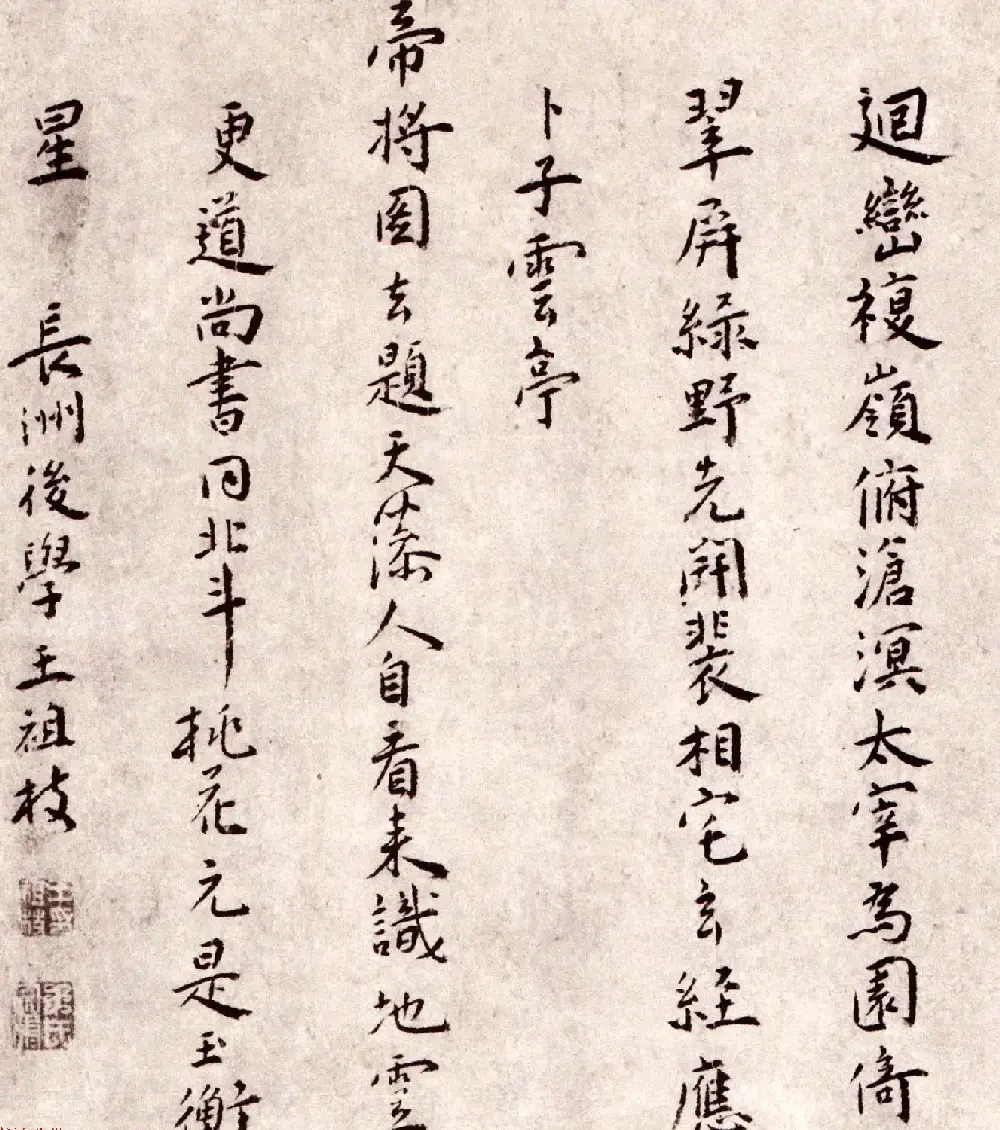 迴巒複嶺俯滄溟太宰為園倚
翠屏綠野先開裴相宅玄經應
卜子雲亭
帝將圖去題天漆人自看來識地靈
更道尚書同北斗桃花元是玉衡
星 長洲後學王祖枝